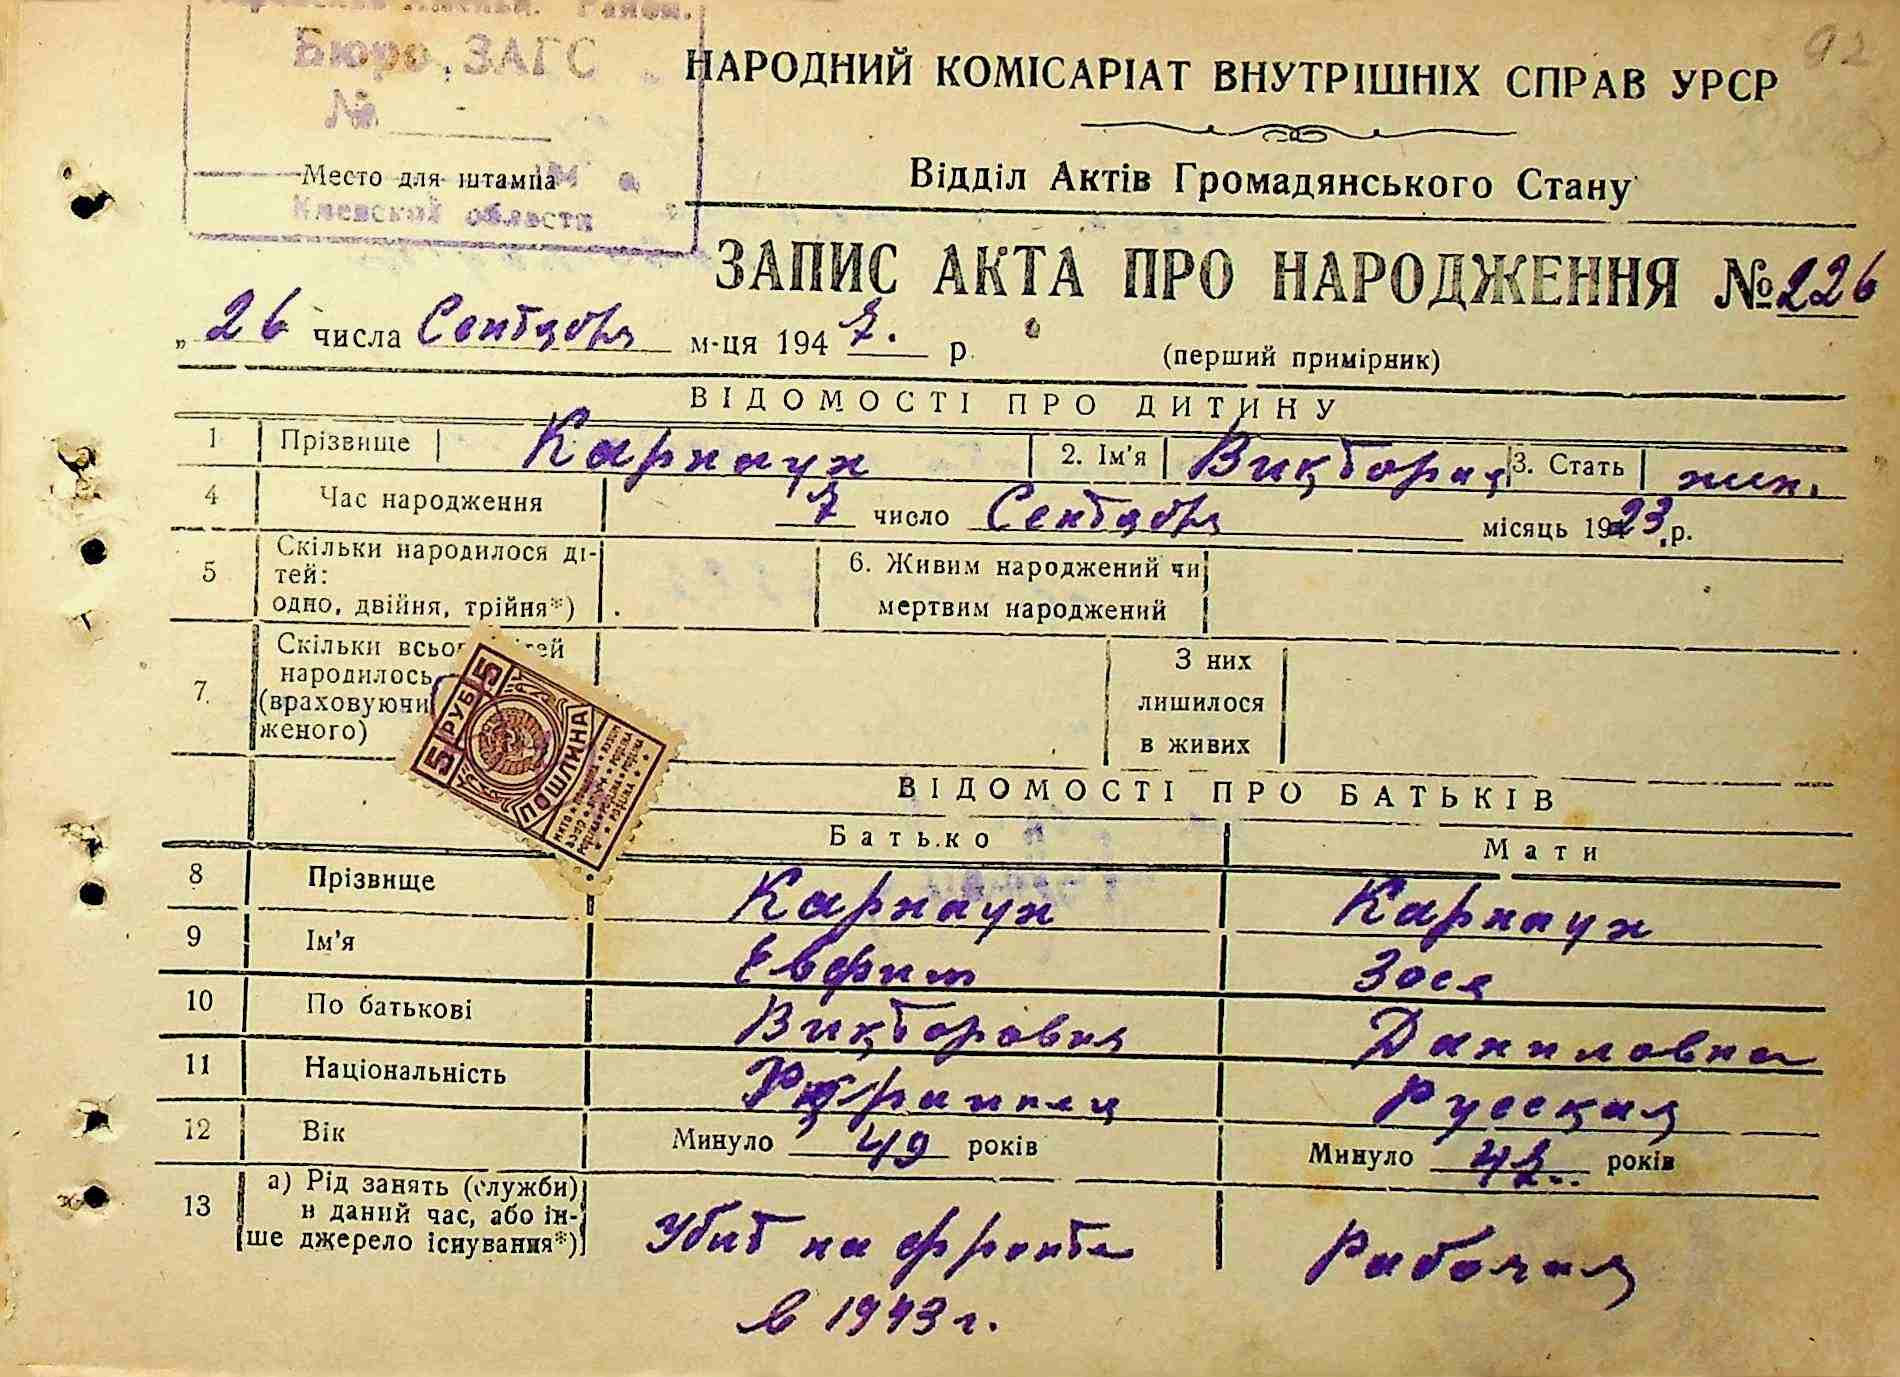 Бюро ЗАГС
№
Место для штампа
Киевской области
92
НАРОДНИЙ КОМІСАРІАТ ВНУТРІШНІХ СПРАВ УРСР
Відділ Актів Громадянського Стану
ЗАПИС АКТА ПРО НАРОДЖЕННЯ № 226
„ 26 числа Сентября м-ця 1947. р. (перший примірник)
ВІДОМОСТІ ПРО ДИТИНУ
1 Прізвище Карнаух 2. Ім'я Виктория 3. Стать жен.
4 Час народження 7 число Сентября місяць 1923 р.
5 Скільки народилося ді-
тей:
одно, двійня, трійня*)
6. Живим народжений чи
мертвим народжений
7 Скільки всього
народилось
(враховуючи
женого)
З них
лишилося
в живих
5 РУБ 5
ПОШЛИНА
ВІДОМОСТІ ПРО БАТЬКІВ
Батько Мати
8 Прізвище Карнаух Карнаух
9 Ім'я Евфим Зося
10 По батькові Викторовия Даниловна
11 Національність Украинец Русская
12 Вік Минуло 49 років Минуло 42 років
13 а) Рід занять (служби)
в даний час, або ін-
ше джерело існування*)
Убит на фронте
в 1943 г.
Рабочая